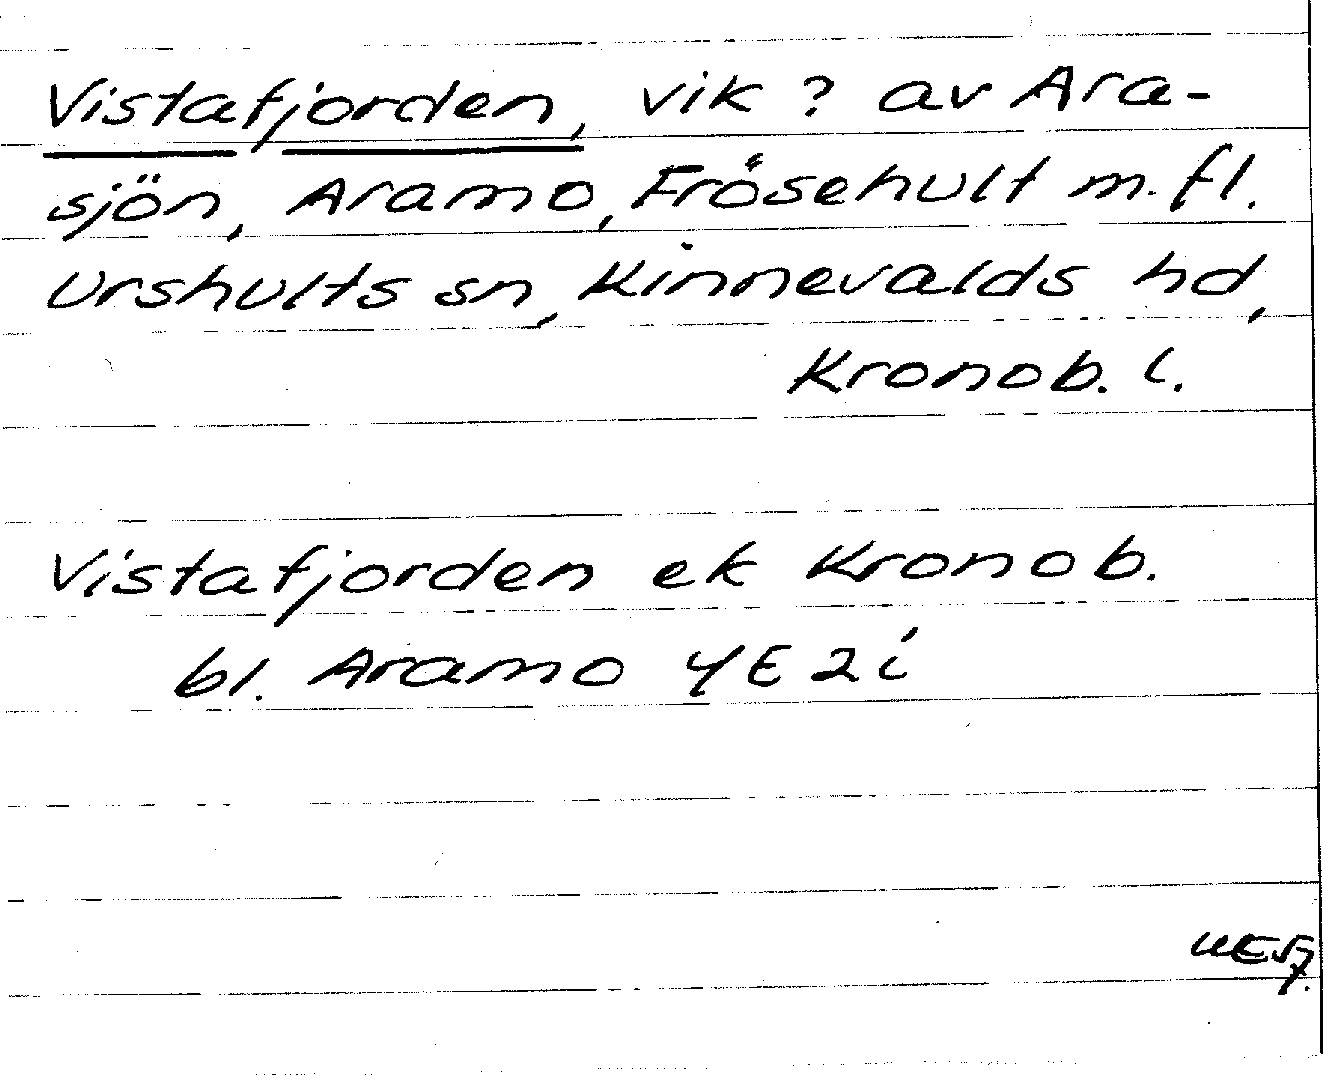 Vistafjorden, vik? av Ara-
sjön, Aramo, Fråsehult m.fl.
Urshults sn, Kinnevalds hd,
Kronob. l.
Vistafjorden ek Kronob.
bl. Aramo 4E2i